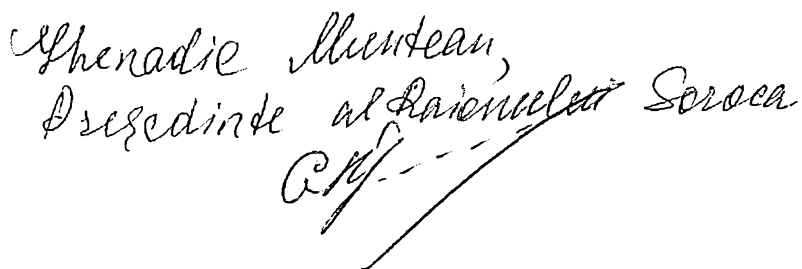 Ghenadie Muntean,
Președinte al Raionului Soroca